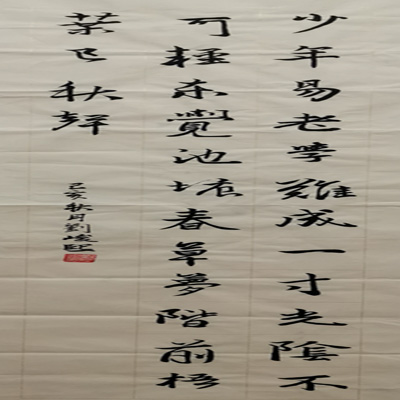 少年易老學難成一寸光陰不
可輕未覺池塘春草夢階前梧
葉已秋聲
己亥秋月劉